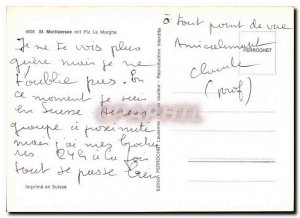 6028 St. Moritzersee mit Piz La Margna
à tout point de vue
Je ne te vois plus
Amicalement
guère mais je ne
Claude
t'oublie pas. En
(prof)
ce moment je suis
en Suisse
groupe à proximité
mais j'ai mes
24h à la
tout se passe bien
PERROCHET
Edition PERROCHET Lausanne
Reproduction interdite
Imprimé en Suisse